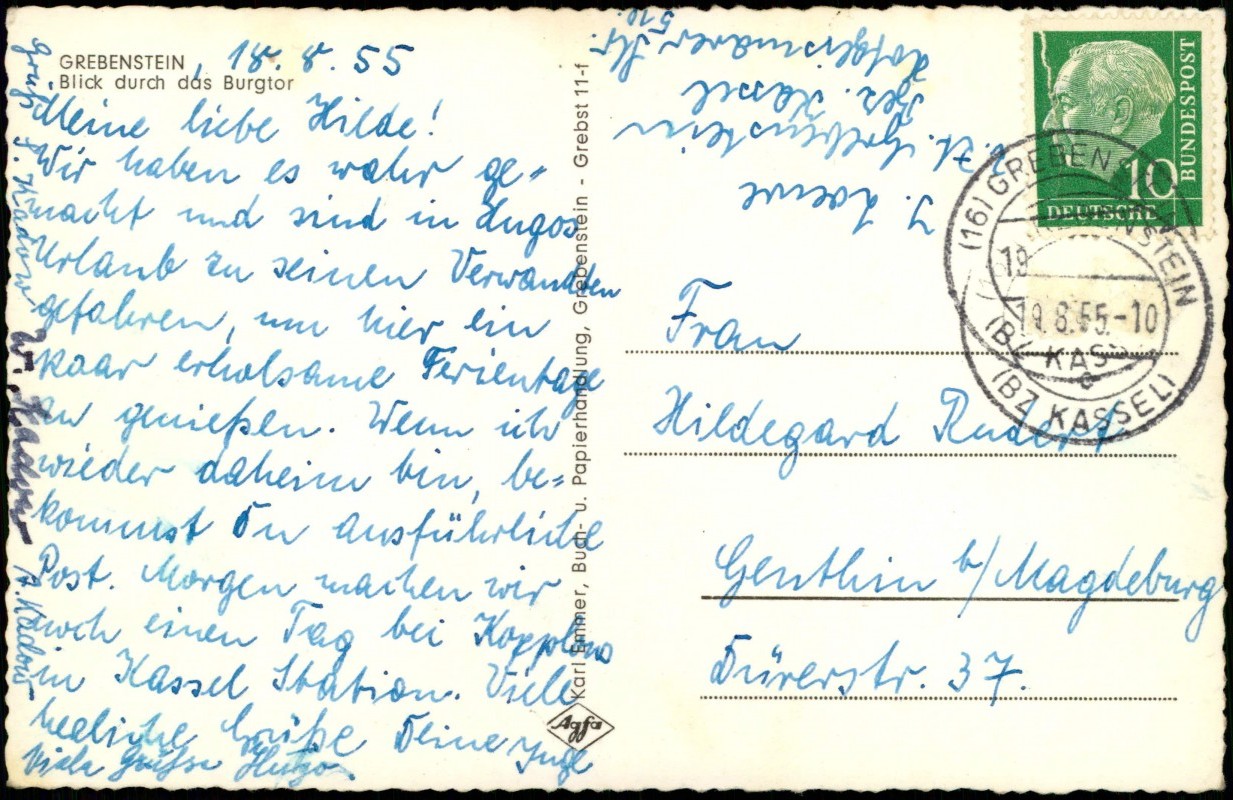 GREBENSTEIN, 18.8.55
Blick durch das Burgtor
Meine liebe Hilde!
Wir haben es wahr ge=
macht und sind in Hugos
Urlaub zu seinen Verwandten
gefahren, um hier ein
paar erholsame Ferientage
zu genießen. Wenn ich
wieder daheim bin, be=
kommst Du ausführliche
Post. Morgen machen wir
noch einen Tag bei
in Kassel Station. Viele
herzliche Grüße Deine Inge
Viele Grüße Hugo
Gruß J. Kadow
W. Kadow
A. Kadow
Karl Emmer, Buch- u. Papierhandlung, Grebenstein - Grebst 11-f
Agfa
J. Loewe
z. Zt. Grebenstein
Bez. Kassel
Hofgeismarer Str.
510.
DEUTSCHE
BUNDESPOST
10
(16) GREBENSTEIN
19.8.55.-10
c
(BZ KASSEL)
Frau
Hildegard Rudert
Genthin b/Magdeburg
Dürerstr. 37.